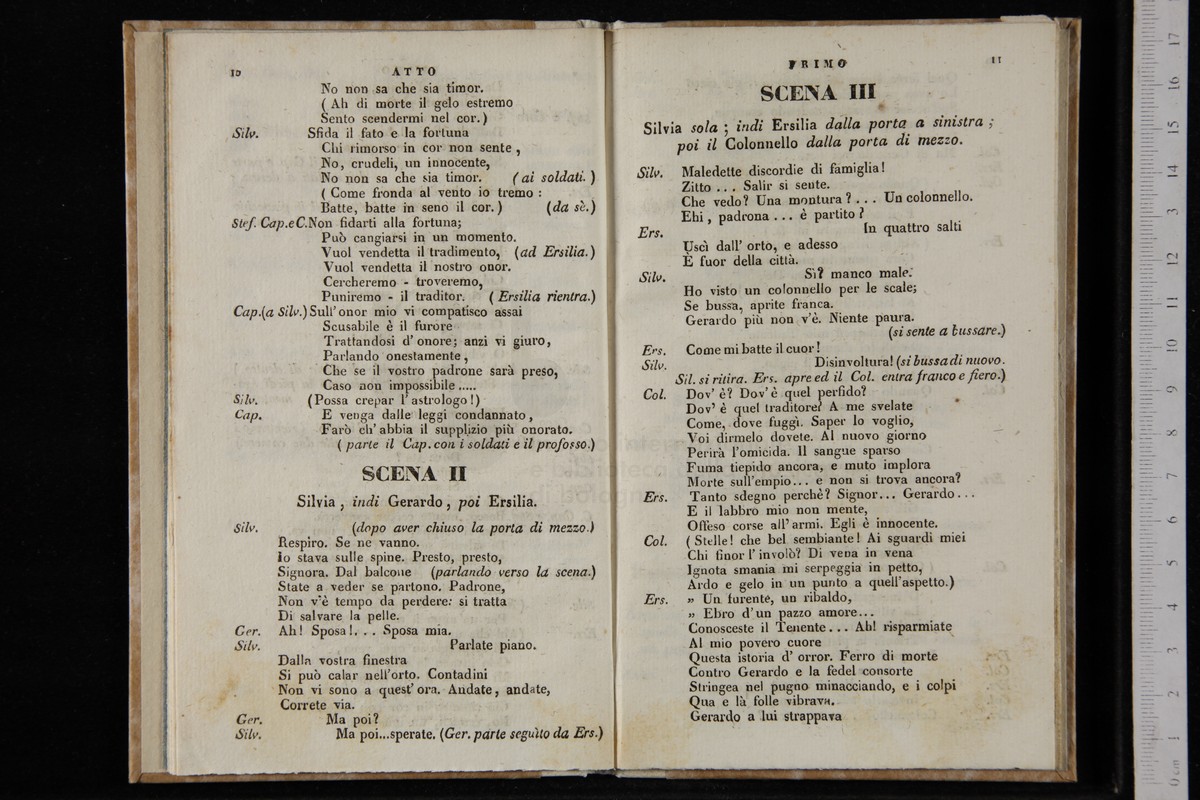 10 ATTO
No non sa che sia timor.
( Ah di morte il gelo estremo
Sento scendermi nel cor. )
Silv. Sfida il fato e la fortuna
Chi rimorso in cor non sente ,
No, crudeli, un innocente,
No non sa che sia timor. ( ai soldati. )
( Come fronda al vento io tremo :
Batte, batte in seno il cor. ) (da sè.)
Stef. Cap. e C. Non fidarti alla fortuna;
Può cangiarsi in un momento.
Vuol vendetta il tradimento, (ad Ersilia.)
Vuol vendetta il nostro onor.
Cercheremo - troveremo,
Puniremo - il traditor. ( Ersilia rientra.)
Cap.(a Silv.) Sull' onor mio vi compatisco assai
Scusabile è il furore
Trattandosi d' onore; anzi vi giuro,
Parlando onestamente ,
Che se il vostro padrone sarà preso,
Caso non impossibile .....
Silv. (Possa crepar l' astrologo!)
Cap. E venga dalle leggi condannato ,
Farò ch' abbia il supplizio più onorato.
( parte il Cap. con i soldati e il profosso.)
SCENA II
Silvia , indi Gerardo , poi Ersilia.
Silv. (dopo aver chiuso la porta di mezzo.)
Respiro. Se ne vanno.
Io stava sulle spine. Presto, presto,
Signora. Dal balcone (parlando verso la scena.)
State a veder se partono. Padrone,
Non v'è tempo da perdere: si tratta
Di salvare la pelle.
Ger. Ah! Sposa!. . . Sposa mia.
Silv. Parlate piano.
Dalla vostra finestra
Si può calar nell'orto. Contadini
Non vi sono a quest' ora. Andate, andate,
Correte via.
Ger. Ma poi?
Silv. Ma poi...sperate. (Ger. parte seguito da Ers.)
PRIMO 11
SCENA III
Silvia sola ; indi Ersilia dalla porta a sinistra ;
poi il Colonnello dalla porta di mezzo.
Silv. Maledette discordie di famiglia!
Zitto . . . Salir si sente.
Che vedo? Una montura? . . . Un colonnello.
Ehi , padrona . . . è partito ?
Ers. In quattro salti
Uscì dall' orto, e adesso
È fuor della città.
Silv. Sì? manco male.
Ho visto un colonnello per le scale;
Se bussa, aprite franca.
Gerardo più non v'è. Niente paura.
(si sente a bussare.)
Ers. Come mi batte il cuor !
Silv. Disinvoltura! (si bussa di nuovo.
Sil. si ritira. Ers. apre ed il Col. entra franco e fiero.)
Col. Dov' è? Dov' è quel perfido?
Dov' è quel traditore? A me svelate
Come, dove fuggì. Saper lo voglio,
Voi dirmelo dovete. Al nuovo giorno
Perirà l'omicida. Il sangue sparso
Fuma tiepido ancora, e muto implora
Morte sull'empio... e non si trova ancora?
Ers. Tanto sdegno perchè? Signor... Gerardo . . .
E il labbro mio non mente,
Offeso corse all' armi. Egli è innocente.
Col. ( Stelle! che bel sembiante! Ai sguardi miei
Chi finor l' involò? Di vena in vena
Ignota smania mi serpeggia in petto,
Ardo e gelo in un punto a quell'aspetto.)
Ers. » Un furente, un ribaldo,
» Ebro d'un pazzo amore...
Conosceste il Tenente . . . Ah! risparmiate
Al mio povero cuore
Questa istoria d' orror. Ferro di morte
Contro Gerardo e la fedel consorte
Stringea nel pugno minacciando, e i colpi
Qua e là folle vibrava.
Gerardo a lui strappava